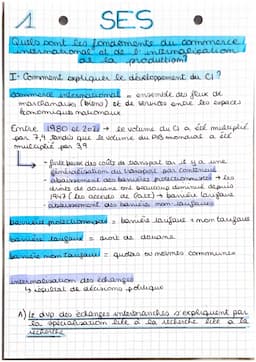 1 SES
Quels sont les fondements du commerce
international et de l'internalisation
de la production?
I- Comment expliquer le développement du CI ?
commerce international = ensemble des flux de
marchandises (biens) et de services entre les espaces
économiques nationaux
Entre 1980 et 2021 → le volume du CI a été multiplié
par 7,9 tandis que le volume du PIB mondial a été
multiplié par 3,9
- forte baisse des coûts de transport car il y a une
généralisation du transport par conteneur
- abaissement des barrières protectionnistes → les
droits de douane ont beaucoup diminué depuis
1947 (les accords de GATT) → barrière tarifaire
- abaissement des barrières non-tarifaires
barrière protectionniste = barrière tarifaire + non tarifaire
barrière tarifaire = droit de douane
barrière non tarifaire = quotas ou normes communes
internalisation des échanges
↳ résultat de décisions politique
A) Le dvp des échanges interbranches s'expliquent par
la spécialisation liée à la recherche liée à la
recherche